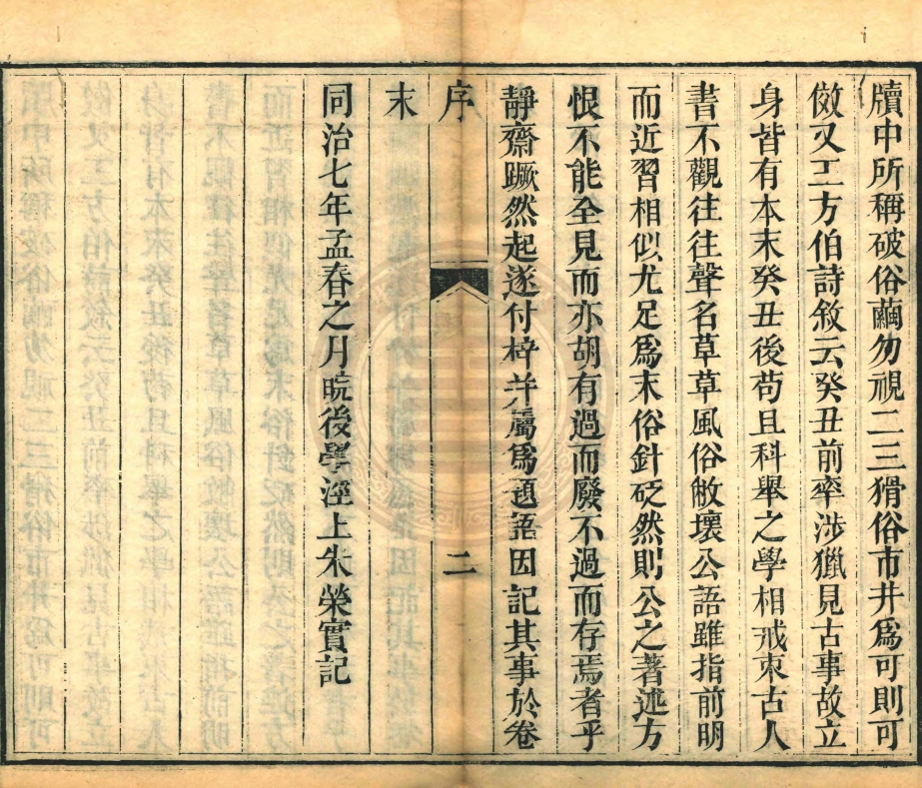 牘中所稱破俗繭勿視二三猾俗市井爲可則可
傚又工方伯詩敘云癸丑前率涉獵見古事故立
身皆有本末癸丑後苟且科舉之學相戒束古人
書不觀往往聲名草草風俗敝壞公語雖指前明
而近習相似尤足爲末俗針砭然則公之著述方
恨不能全見而亦胡有過而廢不過而存焉者乎
靜齋蹶然起遂付梓并屬爲題語因記其事於卷
序
二
末
同治七年孟春之月晥後學涇上朱榮實記